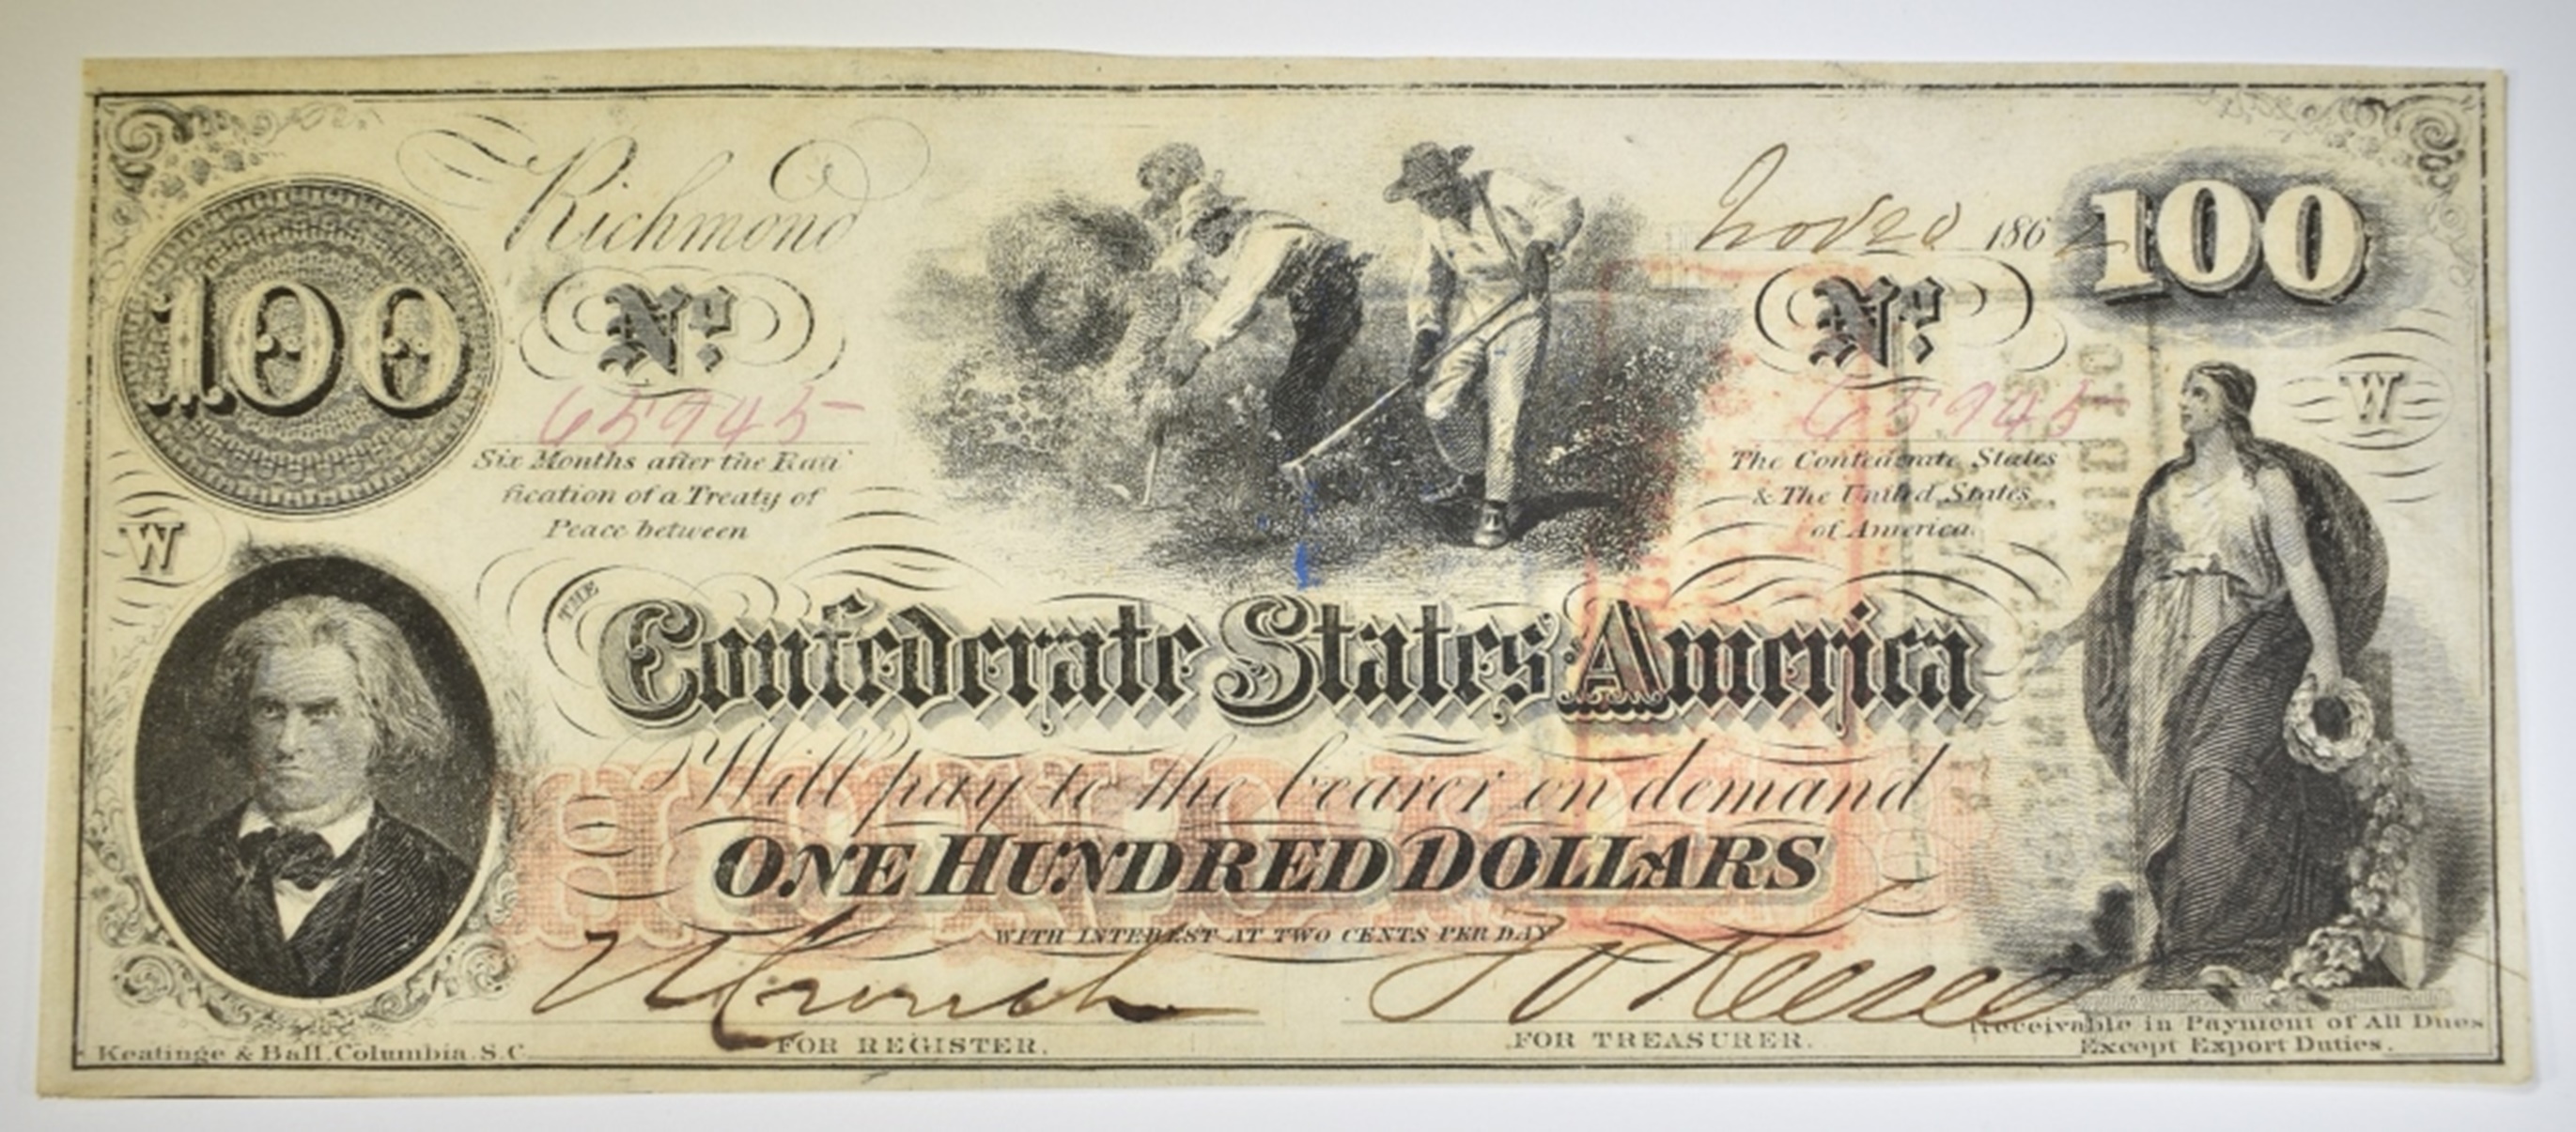 Richmond
Nov 20 1862
100
100
No.
No.
65945
65945
Six Months after the Rati
fication of a Treaty of
Peace between
The Confederate States
& The United States
of America.
W
W
THE
Confederate States America
Will pay to the bearer on demand
ONE HUNDRED DOLLARS
HUNDRED
WITH INTEREST AT TWO CENTS PER DAY
FOR REGISTER.
FOR TREASURER.
Receivable in Payment of All Dues
Except Export Duties.
Keatinge & Ball, Columbia, S.C.